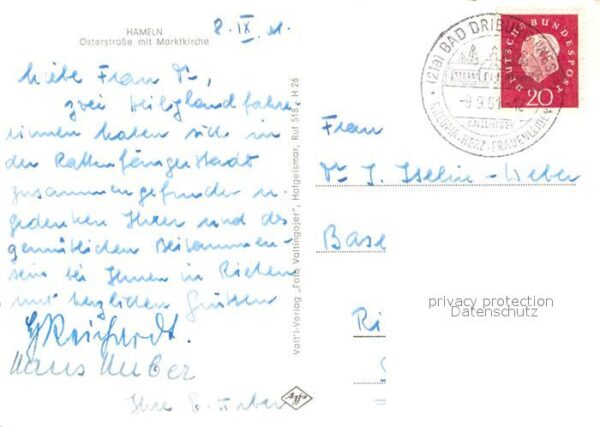 HAMELN
Osterstraße mit Marktkirche
8. IX. 61.
Liebe Frau Dr.,
zwei Heiliglandfahre-
rinnen haben sich in
der Rattenfängerstadt
zusammengefunden u.
gedenken Ihrer und des
gemütlichen Beisammen-
sein bei Ihnen in Riehen
mit herzlichen Grüssen
Hans Huber
Ihre E.
Vatti-Verlag „Foto Vattingojer", Hofgeismar, Ruf 518, H 26
Agfa
(21a) BAD DRIBURG
-9.9.61
RHEUMA-HERZ-FRAUENLEIDEN
DEUTSCHE BUNDESPOST
20
Frau
Dr. J. Iselin-Weber
Base
Ri
privacy protection
Datenschutz